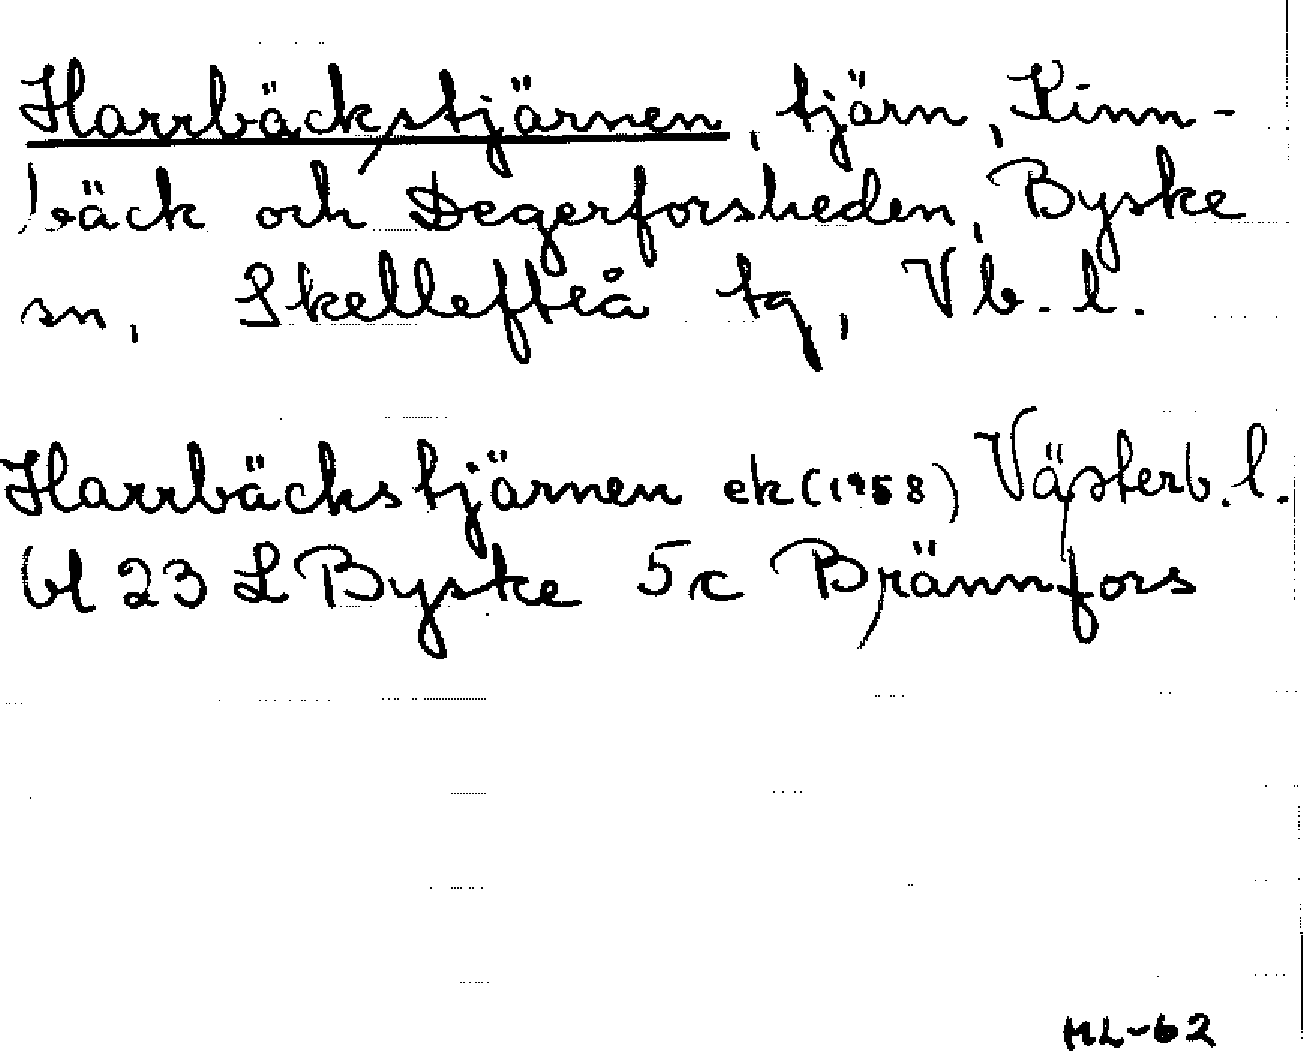 Harrbäckstjärnen, tjärn, Kinn-
bäck och Degerforsheden, Byske
sn, Skellefteå tg, Vb. l.
Harrbäckstjärnen ek (1958) Västerb. l.
bl 23 L Byske 5c Brännfors
HL-62